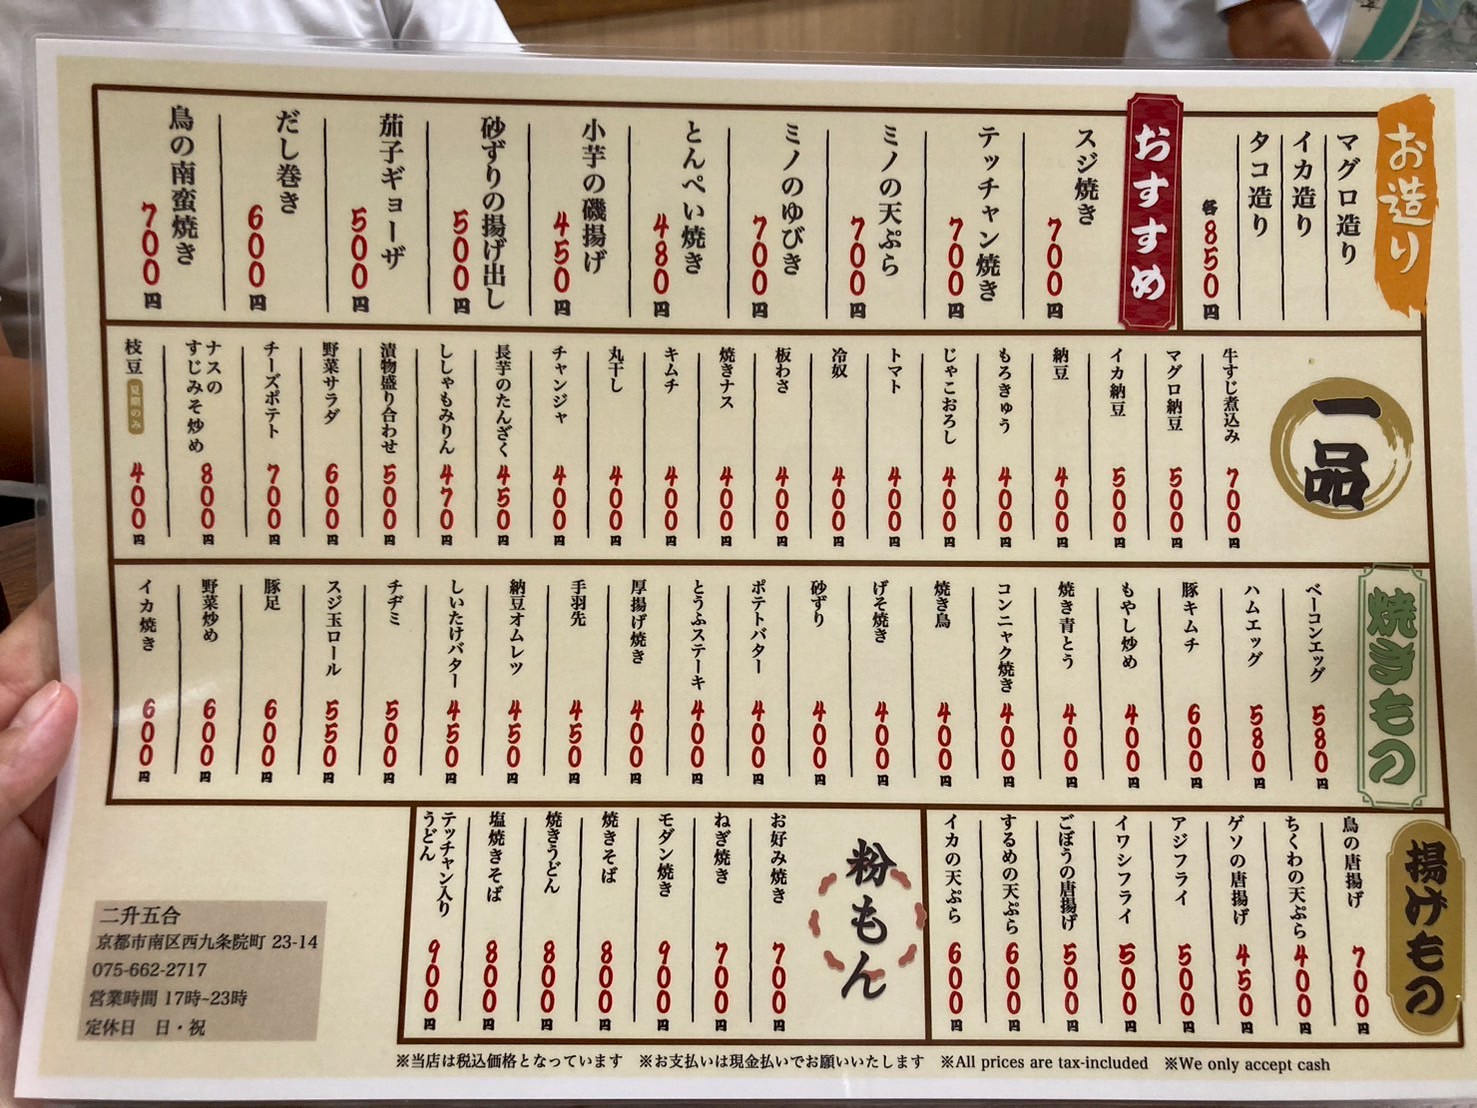 お造り
マグロ造り
イカ造り
タコ造り
各850円
おすすめ
スジ焼き 700円
テッチャン焼き 700円
ミノの天ぷら 700円
ミノのゆびき 700円
とんぺい焼き 480円
小芋の磯揚げ 450円
砂ずりの揚げ出し 500円
茄子ギョーザ 500円
だし巻き 600円
鳥の南蛮焼き 700円
一品
牛すじ煮込み 700円
マグロ納豆 500円
イカ納豆 500円
納豆 400円
もろきゅう 400円
じゃこおろし 400円
トマト 400円
冷奴 400円
板わさ 400円
焼きナス 400円
キムチ 400円
丸干し 400円
チャンジャ 400円
長芋のたんざく 450円
ししゃもみりん 470円
漬物盛り合わせ 500円
野菜サラダ 600円
チーズポテト 700円
ナスの
すじみそ炒め 800円
枝豆 夏期のみ 400円
焼きもの
ベーコンエッグ 580円
ハムエッグ 580円
豚キムチ 600円
もやし炒め 400円
焼き青とう 400円
コンニャク焼き 400円
焼き鳥 400円
げそ焼き 400円
砂ずり 400円
ポテトバター 400円
とうふステーキ 400円
厚揚げ焼き 400円
手羽先 450円
納豆オムレツ 450円
しいたけバター 450円
チヂミ 500円
スジ玉ロール 550円
豚足 600円
野菜炒め 600円
イカ焼き 600円
揚げもの
鳥の唐揚げ 700円
ちくわの天ぷら 400円
ゲソの唐揚げ 450円
アジフライ 500円
イワシフライ 500円
ごぼうの唐揚げ 500円
するめの天ぷら 600円
イカの天ぷら 600円
粉もん
お好み焼き 700円
ねぎ焼き 700円
モダン焼き 900円
焼きそば 800円
焼きうどん 800円
塩焼きそば 800円
テッチャン入り
うどん 900円
二升五合
京都市南区西九条院町 23-14
075-662-2717
営業時間 17時~23時
定休日 日・祝
※当店は税込価格となっています ※お支払いは現金払いでお願いいたします ※All prices are tax-included ※We only accept cash